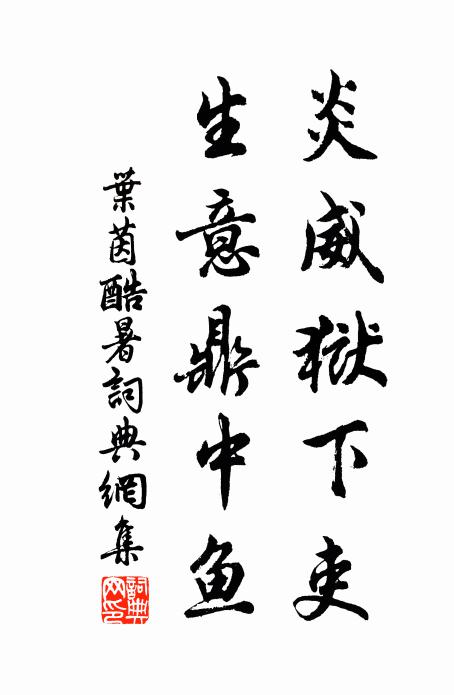 炎威獄下吏
生意鼎中魚
葉茵酷暑詞典網集
詞典網印